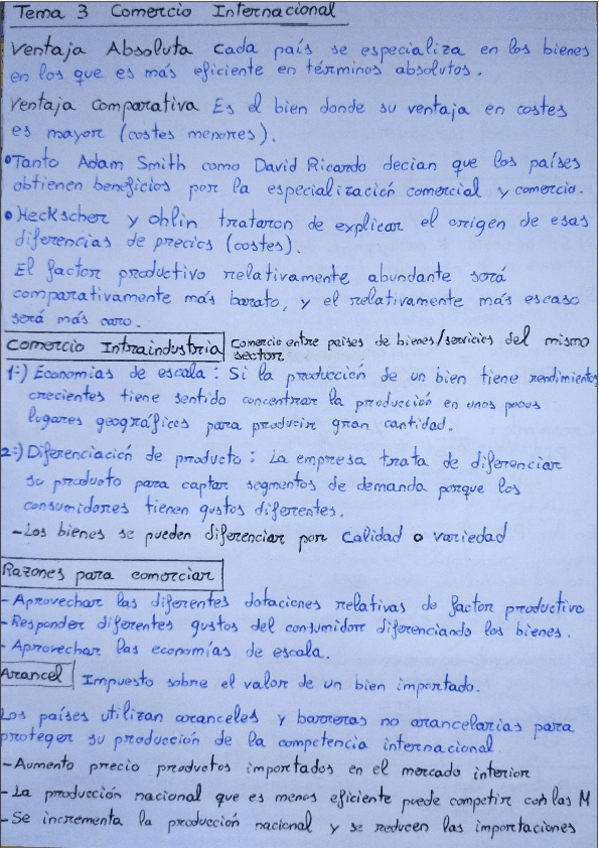 Tema 3 Comercio Internacional
Ventaja Absoluta Cada país se especializa en los bienes
en los que es más eficiente en términos absolutos.
Ventaja Comparativa Es el bien donde su ventaja en costes
es mayor (costes menores).
•Tanto Adam Smith como David Ricardo decian que los países
obtienen beneficios por la especialización comercial y comercio.
•Heckscher y Ohlin trataron de explicar el origen de esas
diferencias de precios (costes).
El factor productivo relativamente abundante será
comparativamente más barato, y el relativamente más escaso
será más caro.
Comercio Intraindustria Comercio entre países de bienes/servicios del mismo
sector
1º) Economías de escala: Si la producción de un bien tiene rendimientos
crecientes tiene sentido concentrar la producción en unos pocos
lugares geográficos para producir gran cantidad.
2º) Diferenciación de producto: La empresa trata de diferenciar
su producto para captar segmentos de demanda porque los
consumidores tienen gustos diferentes.
-Los bienes se pueden diferenciar por Calidad o variedad
Razones para comerciar
-Aprovechar las diferentes dotaciones relativas de factor productivo
-Responder diferentes gustos del consumidor diferenciando los bienes.
-Aprovechar las economías de escala.
Arancel Impuesto sobre el valor de un bien importado.
Los países utilizan aranceles y barreras no arancelarias para
proteger su producción de la competencia internacional.
-Aumento precio productos importados en el mercado interior
-La producción nacional que es menos eficiente puede competir con las M
-Se incrementa la producción nacional y se reducen las importaciones